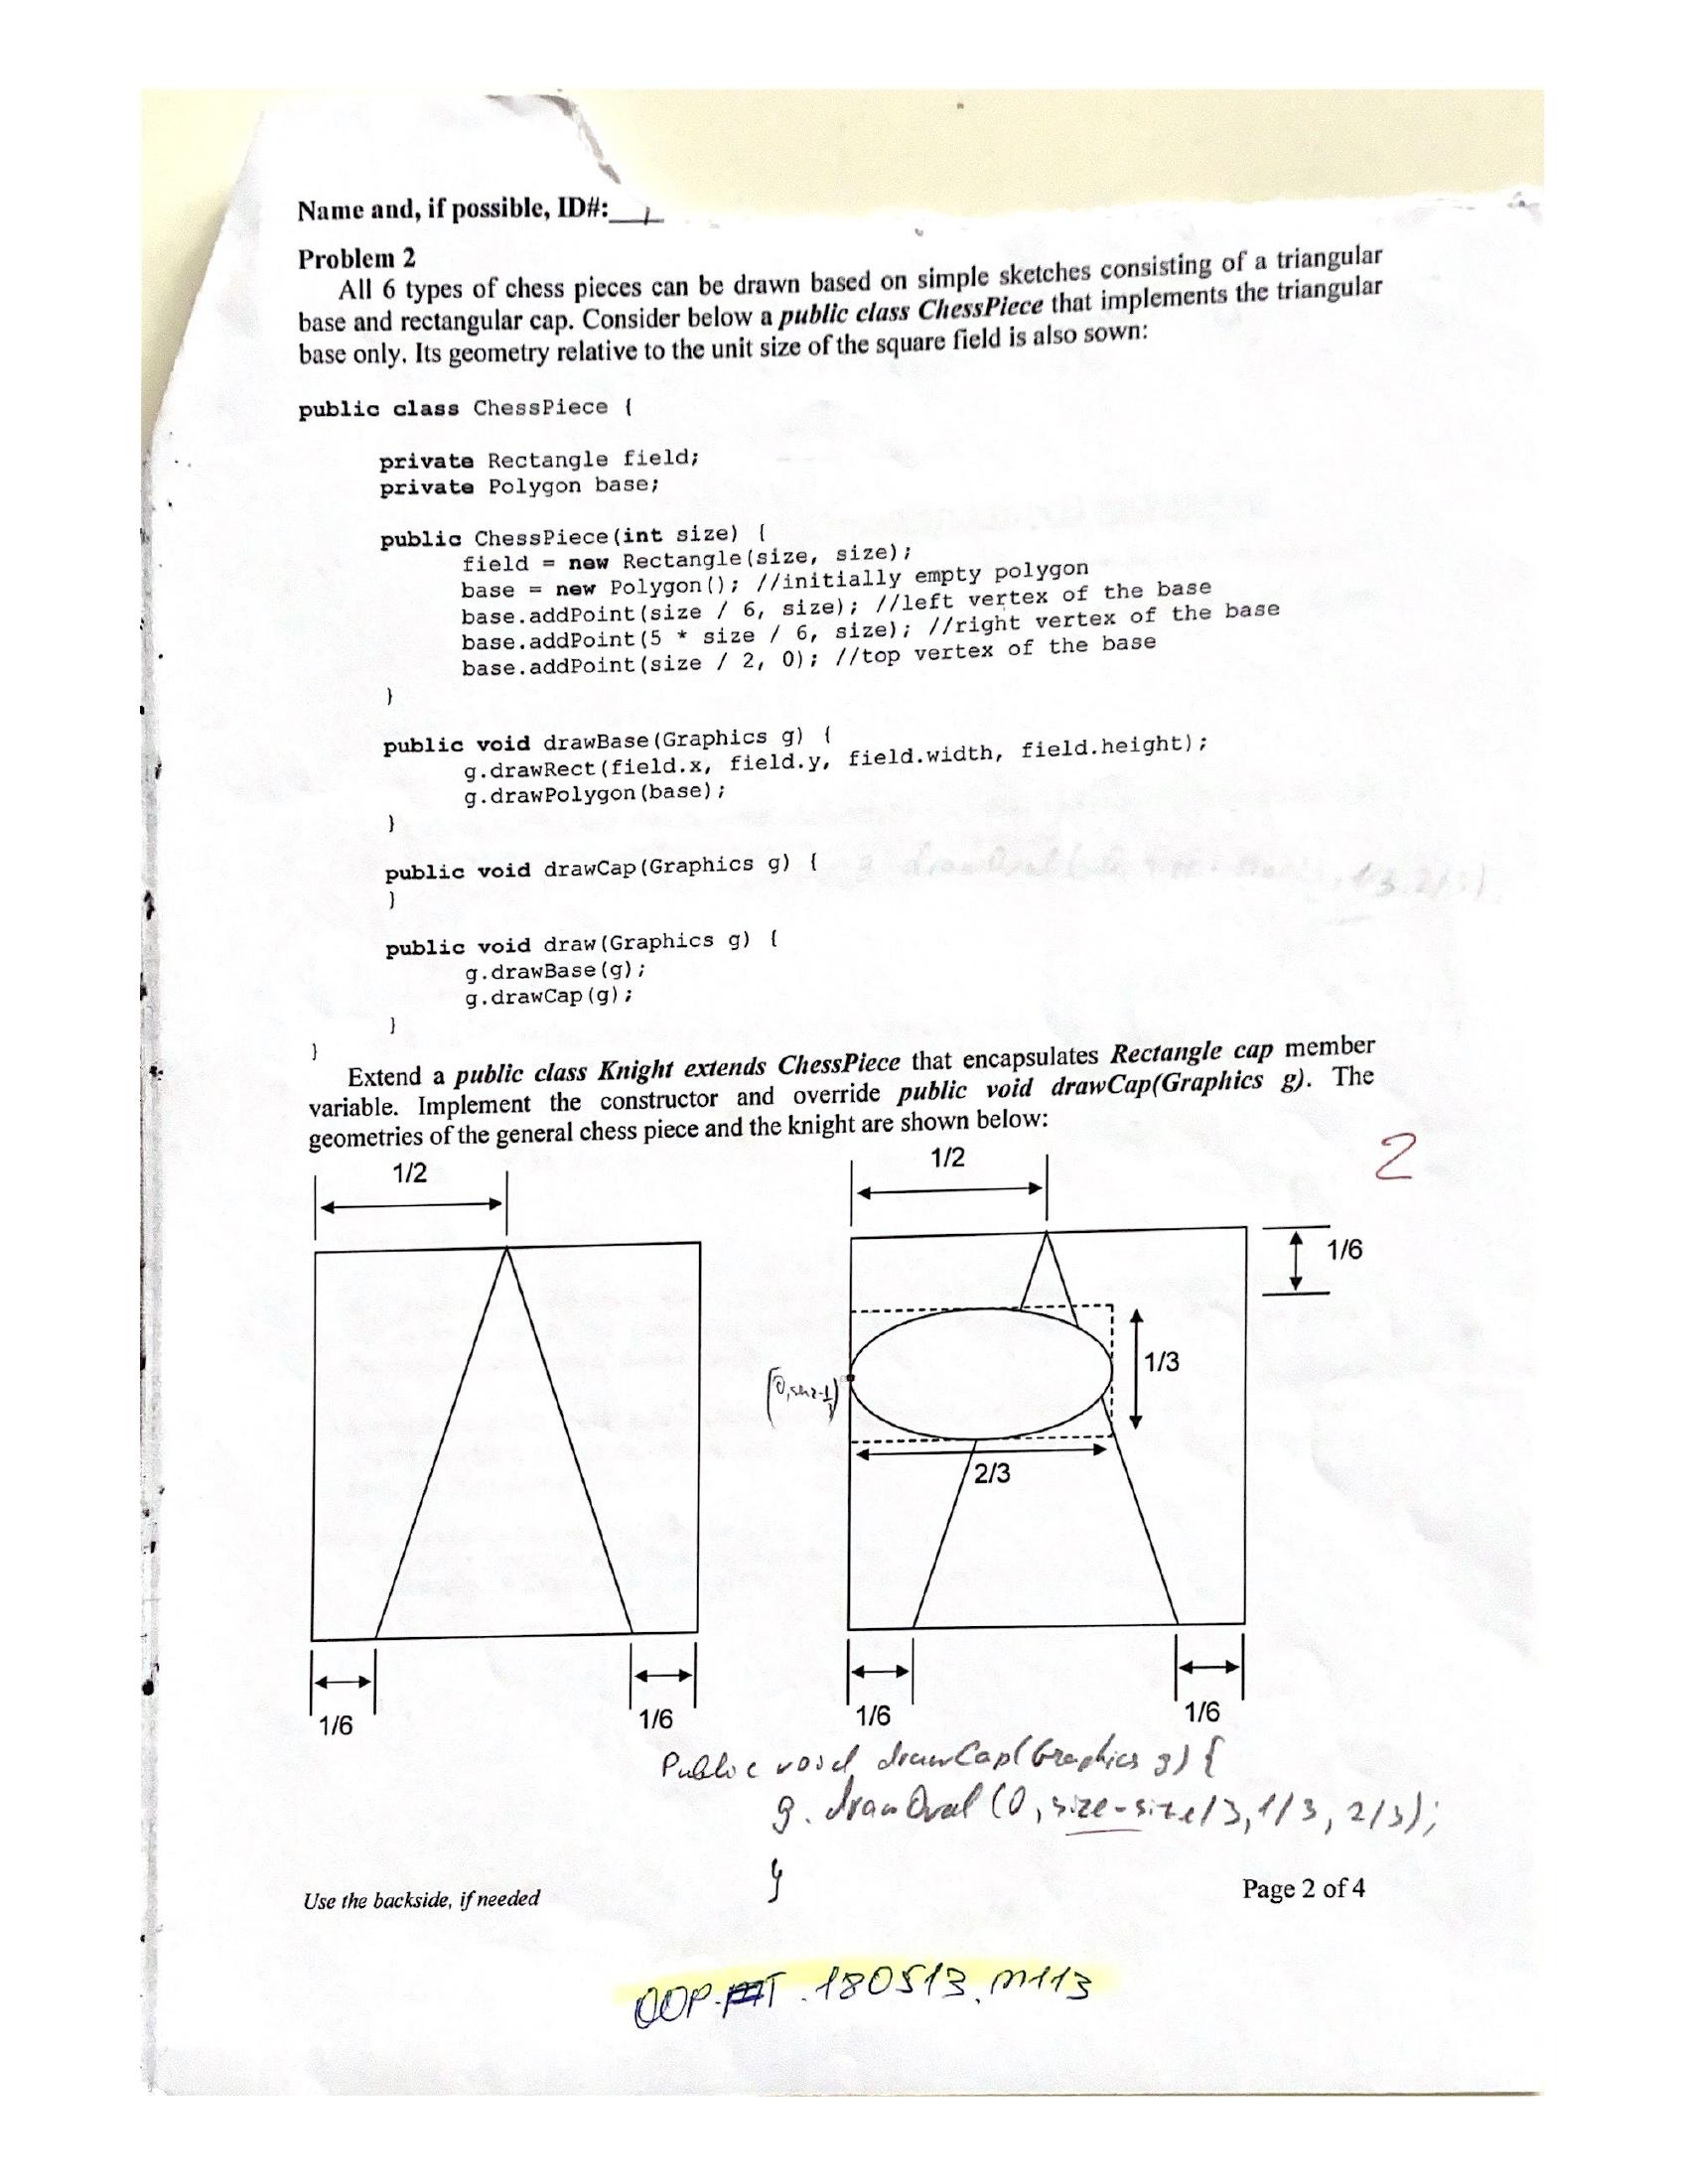 Name and, if possible, ID#:
Problem 2
All 6 types of chess pieces can be drawn based on simple sketches consisting of a triangular
base and rectangular cap. Consider below a public class ChessPiece that implements the triangular
base only. Its geometry relative to the unit size of the square field is also sown:
public class ChessPiece {
private Rectangle field;
private Polygon base;
public ChessPiece(int size) {
field = new Rectangle(size, size);
base = new Polygon(); //initially empty polygon
base.addPoint(size / 6, size); //left vertex of the base
base.addPoint(5 * size / 6, size); //right vertex of the base
base.addPoint(size / 2, 0); //top vertex of the base
}
public void drawBase(Graphics g) {
g.drawRect(field.x, field.y, field.width, field.height);
g.drawPolygon(base);
}
public void drawCap(Graphics g) {
}
public void draw(Graphics g) {
g.drawBase(g);
g.drawCap(g);
}
}
Extend a public class Knight extends ChessPiece that encapsulates Rectangle cap member
variable. Implement the constructor and override public void drawCap(Graphics g). The
geometries of the general chess piece and the knight are shown below:
2
1/2
1/2
1/6
1/3
2/3
1/6
1/6
1/6
1/6
Public void drawCap(Graphics g) {
g. drawOval (0, size-size/3, 1/3, 2/3);
}
Use the backside, if needed
Page 2 of 4
180513.m113